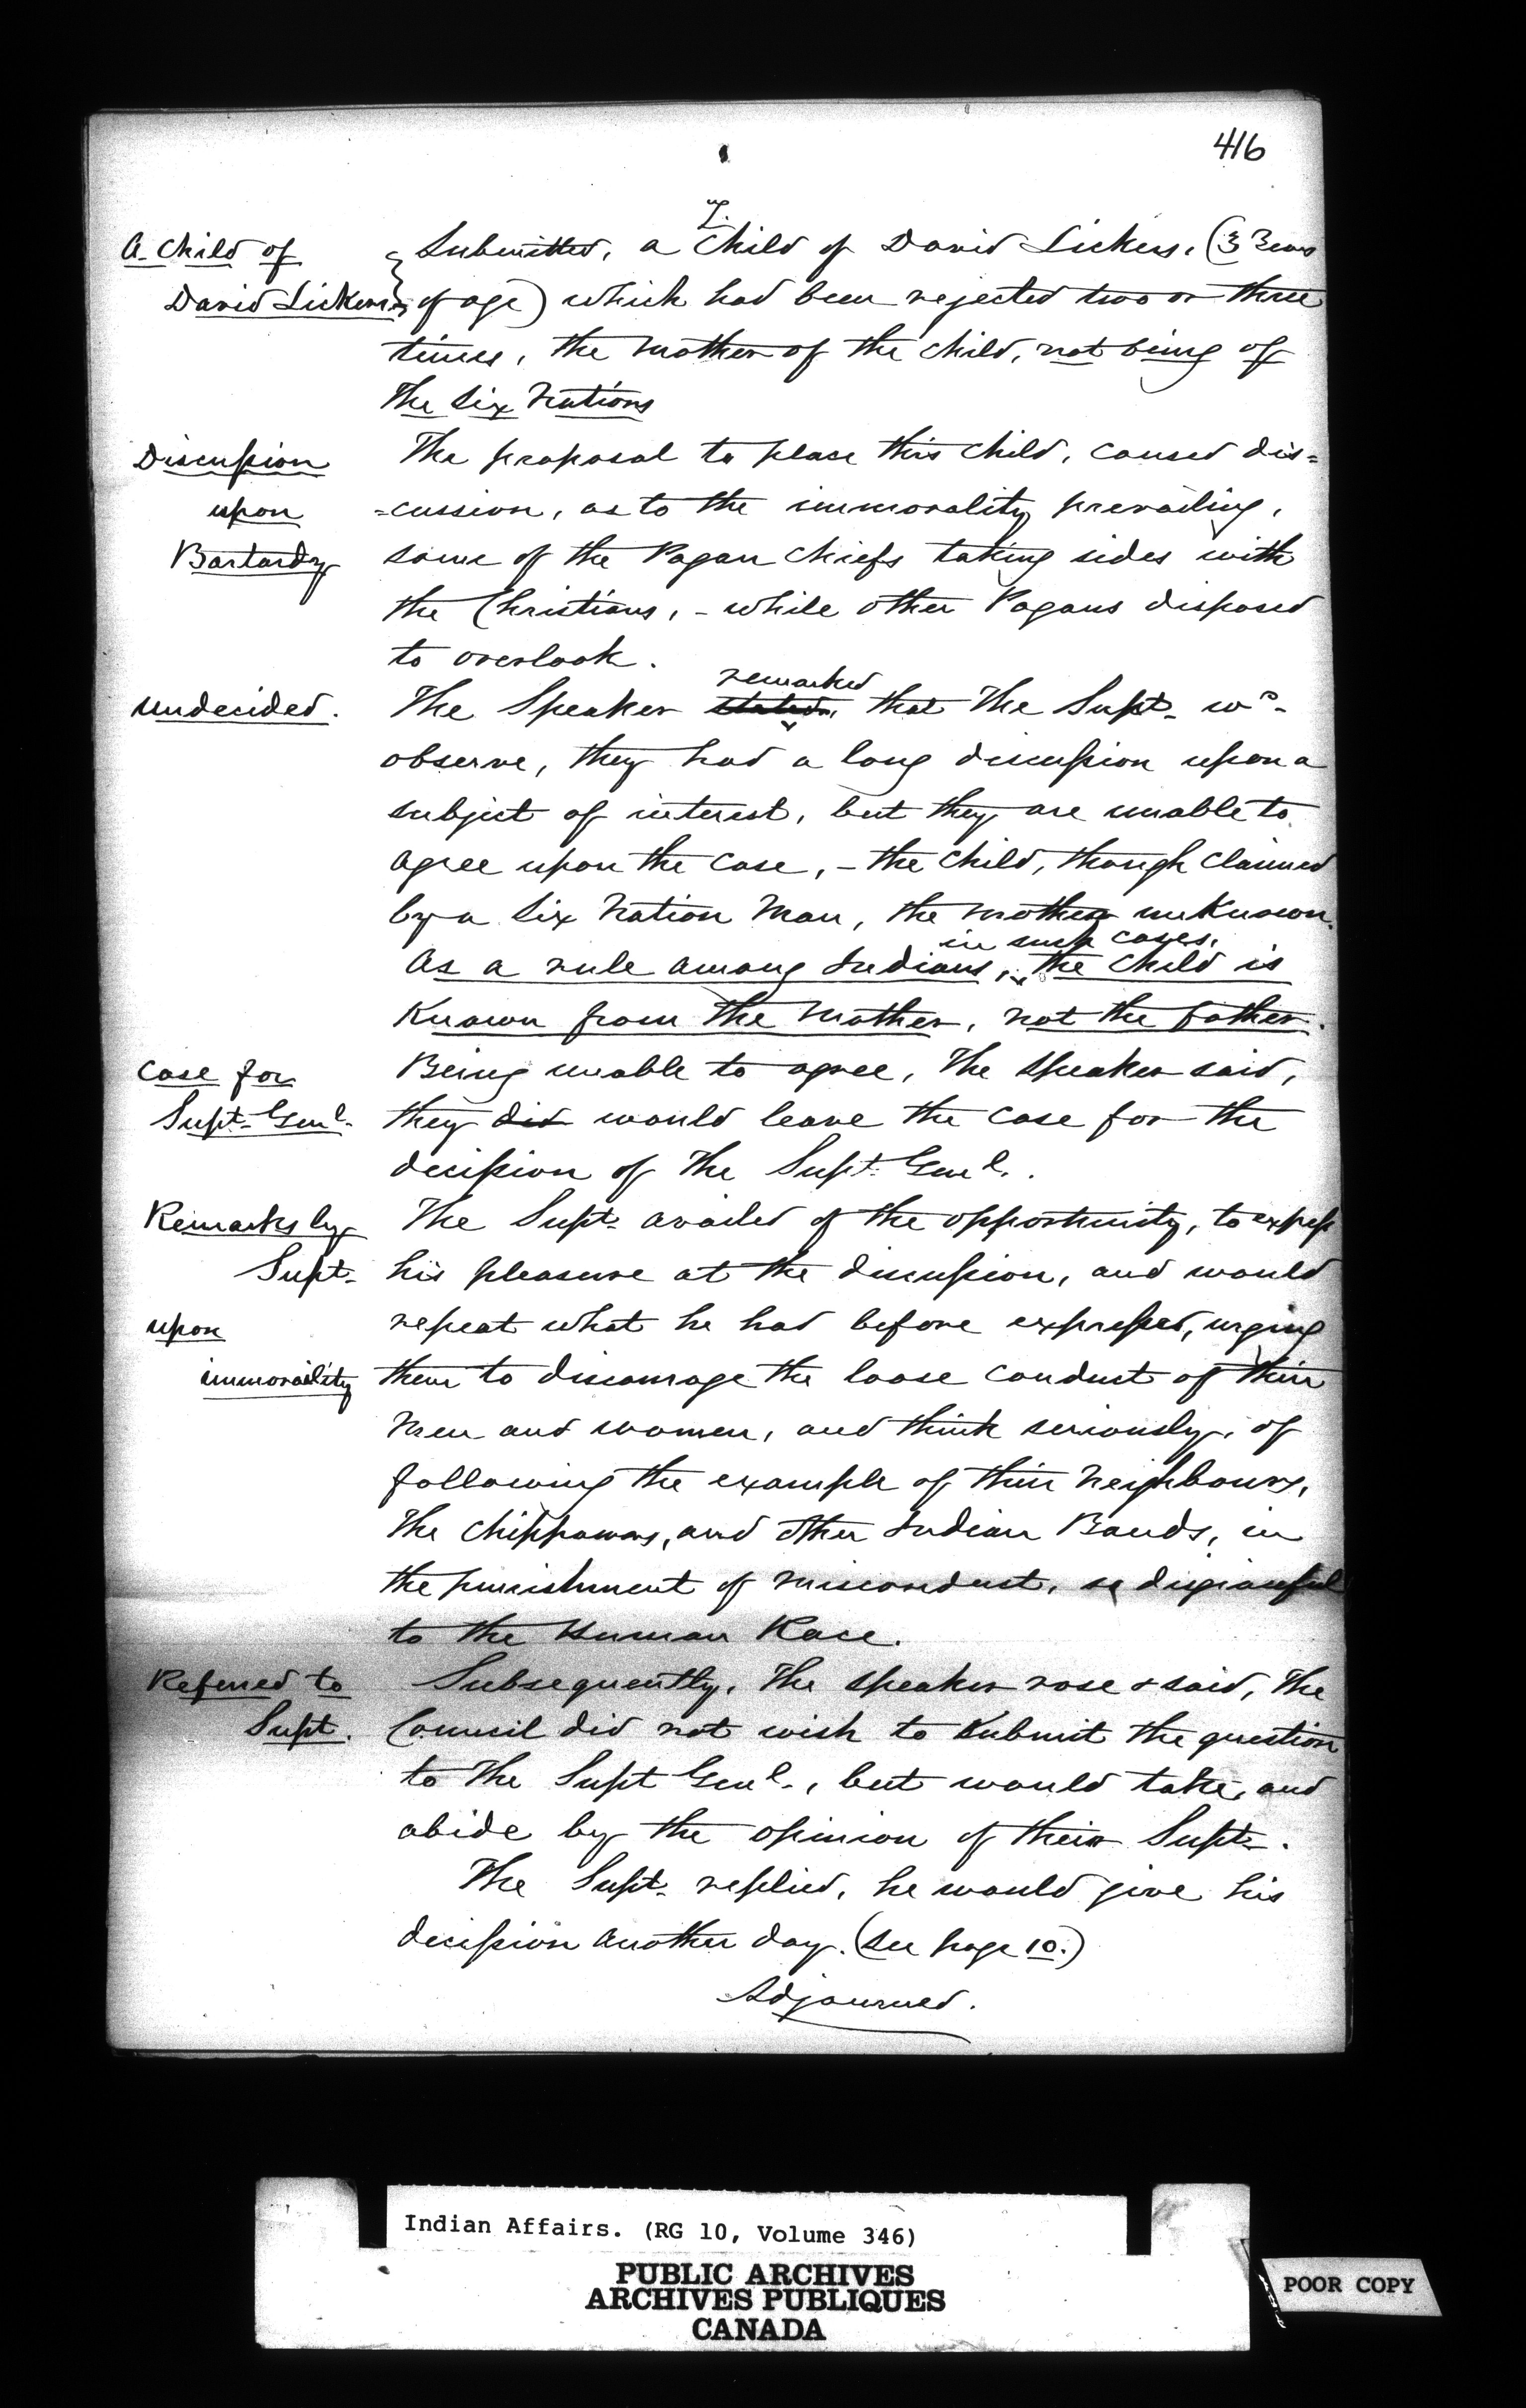 416
7.
A Child of
David Lickers
Submitted, a Child of David Lickers, (3 Years
of age) which had been rejected two or three
times, the mother of the child, not being of
The Six Nations
Discussion
upon
Bastardy
The proposal to place this child, caused dis=
=cussion, as to the immorality prevailing,
some of the Pagan Chiefs taking sides with
the Christians, - while other Pagans disposed
to overlook.
undecided.
remarked
The Speaker stated, that The Supt. wd.
observe, they had a long discussion upon a
subject of interest, but they are unable to
agree upon the case, - the child, though claimed
by a Six Nation Man, the mother unknown.
in such cases,
As a rule among Indians, the child is
Known from the Mother, not the father.
Case for
Supt. Genl.
Being unable to agree, The Speaker said,
they did would leave the case for the
decision of The Supt. Genl.
Remarks by
Supt.
upon
immorality
The Supt. availed of the opportunity, to express
his pleasure at the discussion, and would
repeat what he had before expressed, urging
them to discourage the loose conduct of their
Men and women, and think seriously, of
following the example of their Neighbours,
The Chippawas, and other Indian Bands, in
the punishment of misconduct, so disgraceful
to the Human Race.
Referred to
Supt.
Subsequently, The Speaker rose & said, The
Council did not wish to submit the question
to The Supt Genl., but would take, and
abide by the opinion of their Supt.
The Supt. replied, he would give his
decision another day. (See page 10.)
Adjourned.
Indian Affairs. (RG 10, Volume 346)
PUBLIC ARCHIVES
ARCHIVES PUBLIQUES
CANADA
POOR COPY